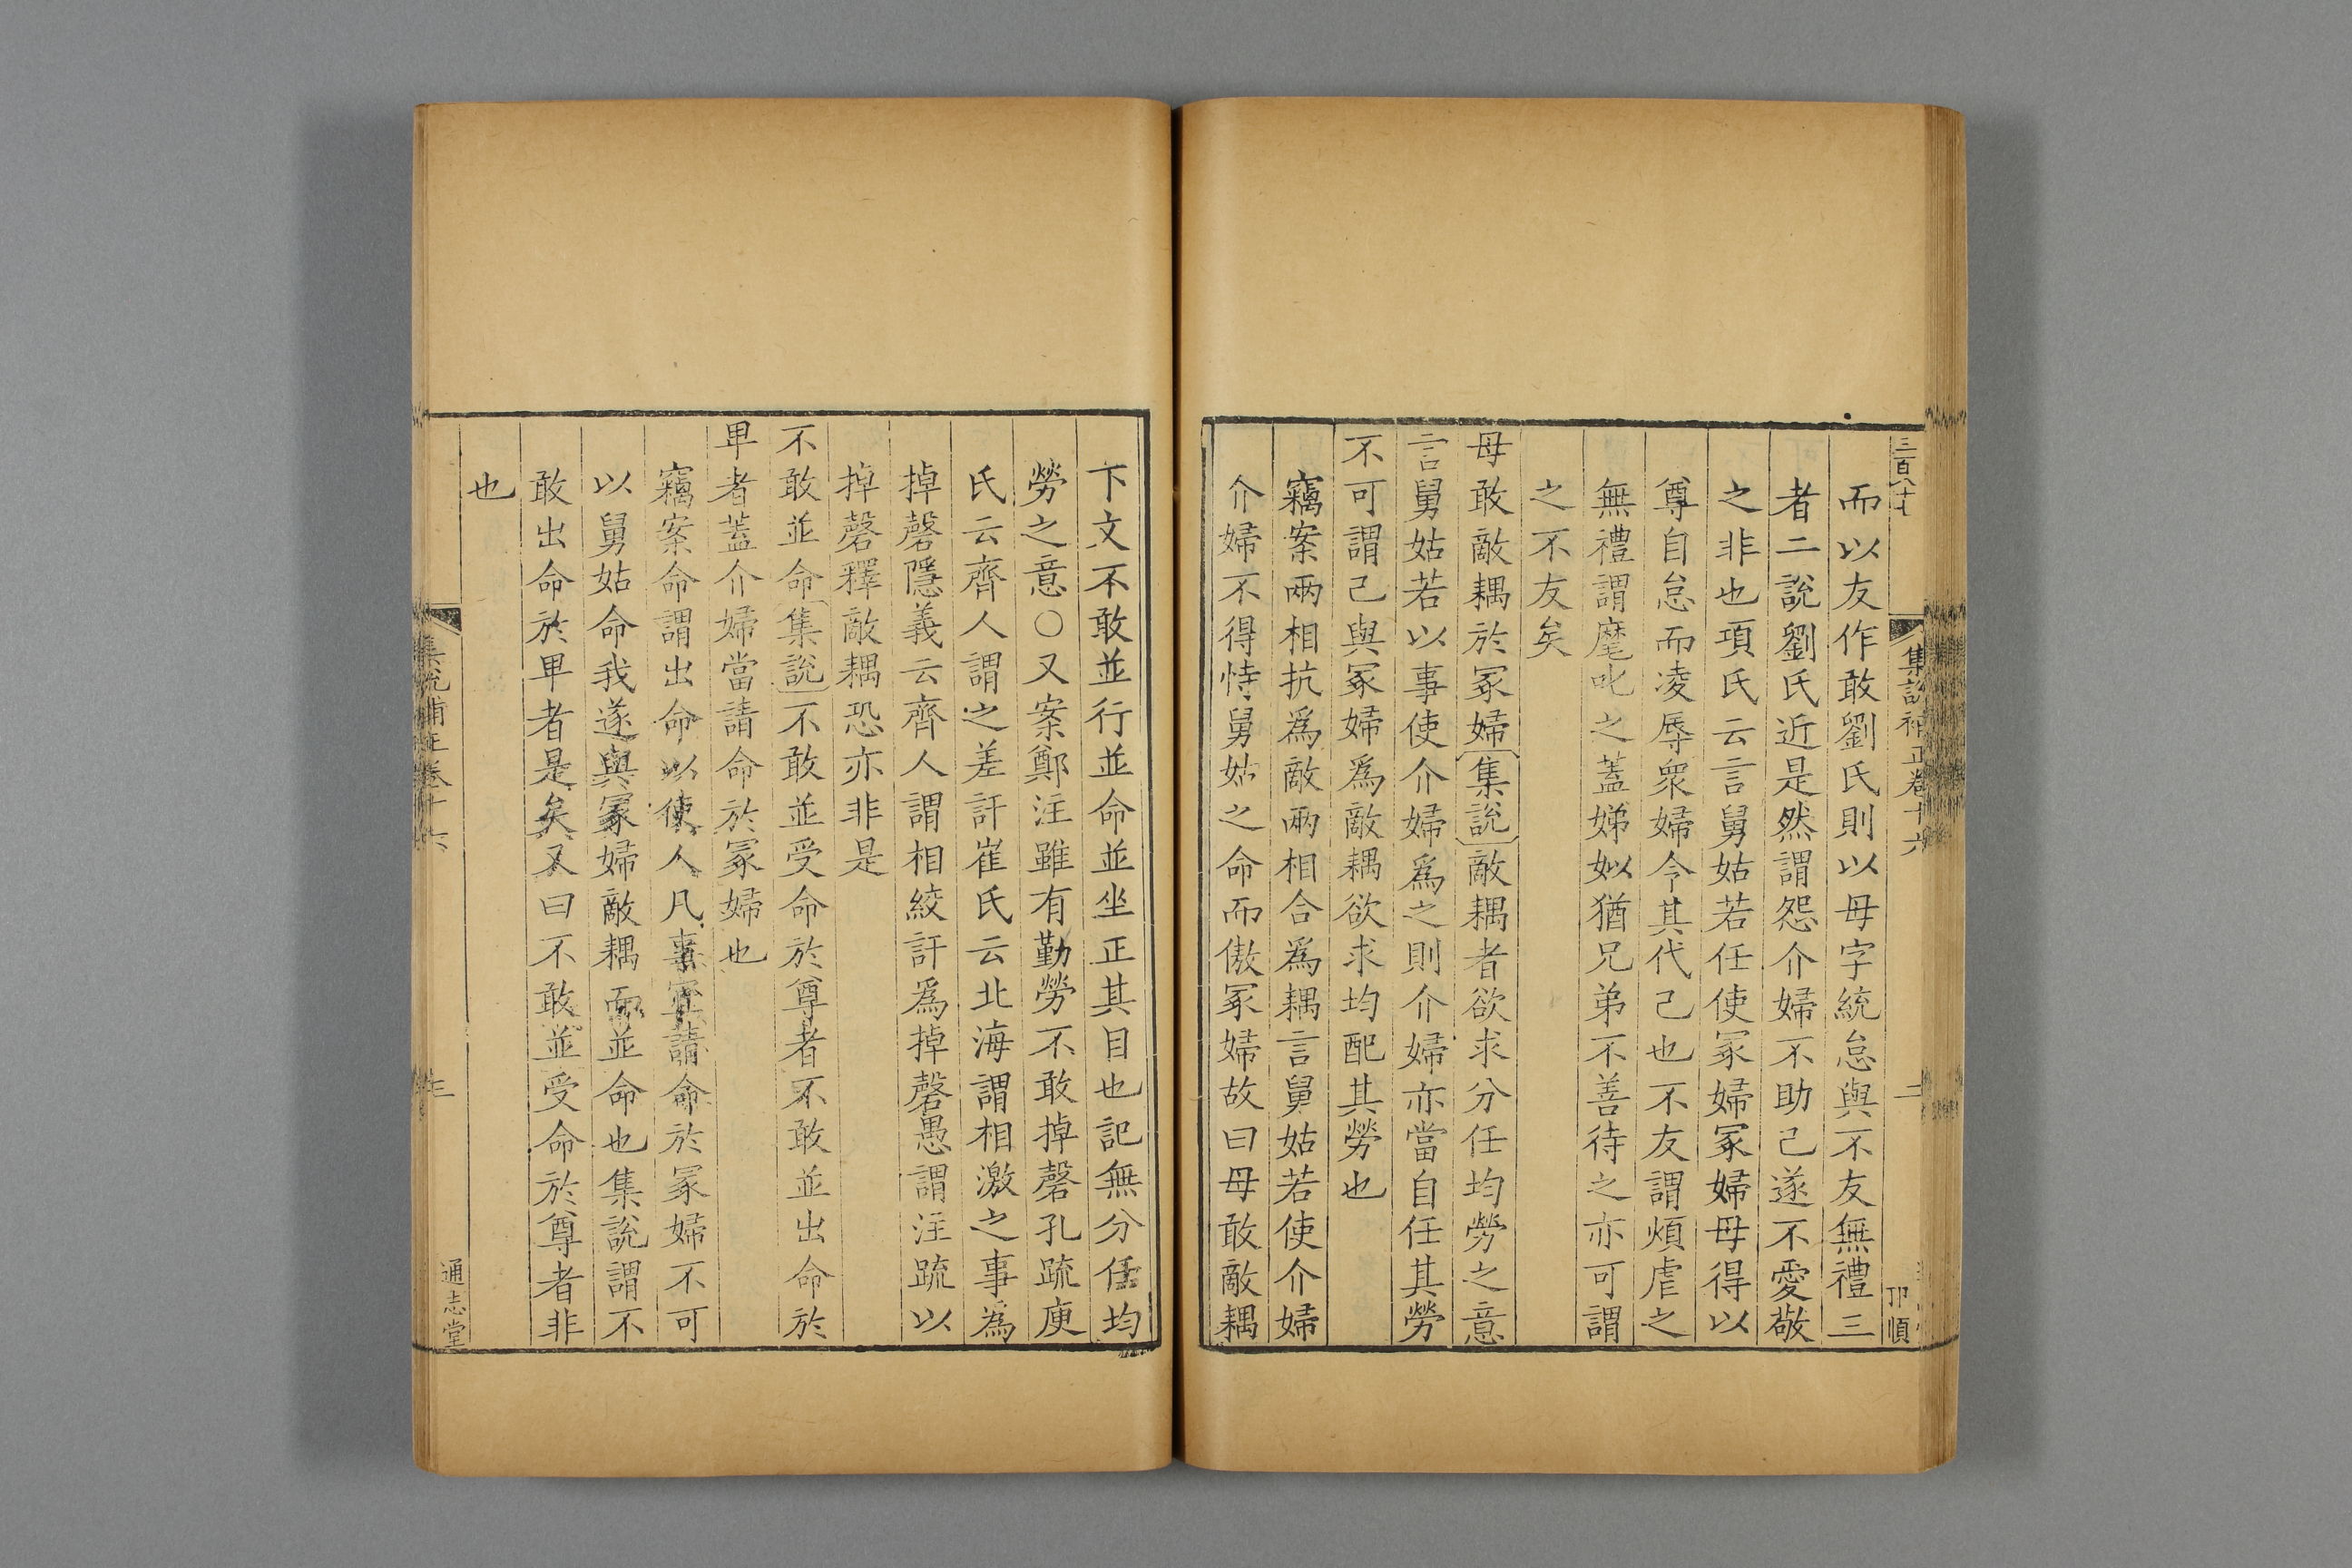 三百八十七
集說補正卷十六
二
卭順
而以友作敢劉氏則以毋字統怠與不友無禮三
者二說劉氏近是然謂怨介婦不助己遂不愛敬
之非也項氏云言舅姑若任使冢婦冢婦毋得以
尊自怠而凌辱衆婦令其代己也不友謂煩虐之
無禮謂麾叱之蓋娣姒猶兄弟不善待之亦可謂
之不友矣
毋敢敵耦於冢婦集說敵耦者欲求分任均勞之意
言舅姑若以事使介婦爲之則介婦亦當自任其勞
不可謂己與冢婦爲敵耦欲求均配其勞也
竊案兩相抗爲敵兩相合爲耦言舅姑若使介婦
介婦不得恃舅姑之命而傲冢婦故曰毋敢敵耦
下文不敢並行並命並坐正其目也記無分任均
勞之意○又案鄭注雖有勤勞不敢掉磬孔疏庾
氏云齊人謂之差訐崔氏云北海謂相激之事爲
掉磬隱義云齊人謂相絞訐爲掉磬愚謂注疏以
掉磬釋敵耦恐亦非是
不敢並命集說不敢並受命於尊者不敢並出命於
卑者蓋介婦當請命於冢婦也
竊案命謂出命以使人凡事宜請命於冢婦不可
以舅姑命我遂與冢婦敵耦而並命也集說謂不
敢出命於卑者是矣又曰不敢並受命於尊者非
也
集說補正卷十六
三
通志堂